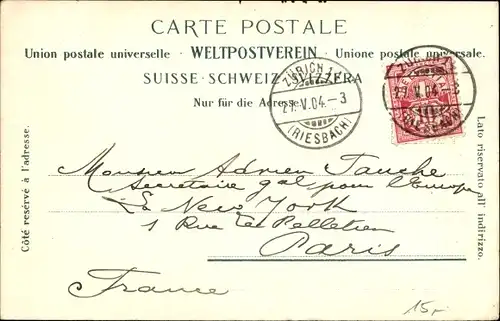 CARTE POSTALE
Union postale universelle · WELTPOSTVEREIN · Unione postale universale.
SUISSE · SCHWEIZ · SVIZZERA
Nur für die Adresse.
ZÜRICH
V.04.-3
(RIESBACH)
ZÜRICH
V.04.-3
(RIESBACH)
10
Côté reservé à l'adresse.
Lato riservato all' indirizzo.
Monsieur Adrien Tauche
Secretaire gal pour l'Europe
La New York
1 Rue Le Pelletier
Paris
France
15,-